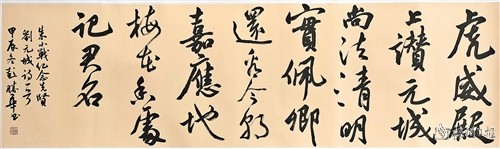 虎威殿
上讚元城
尚法清明
實佩卿
還看今朝
嘉應地
梅花香處
記君名
朱小戰紀念先賢
劉元城詩一首
甲辰冬彭華書